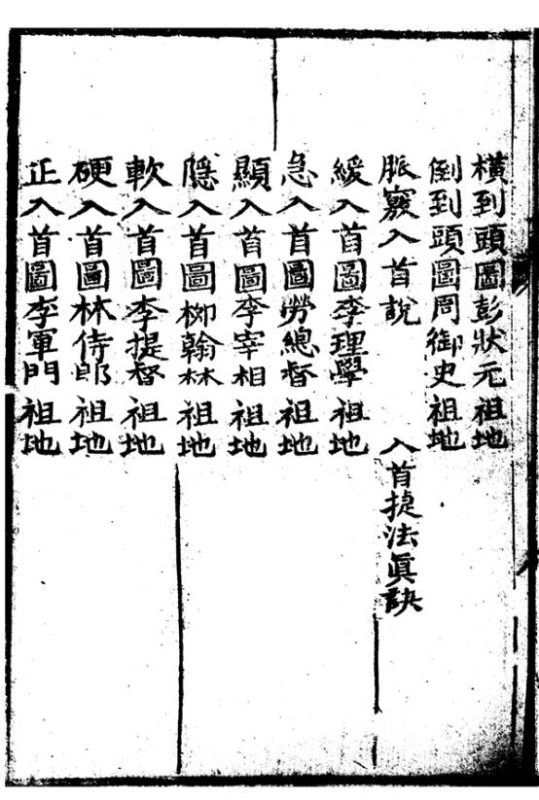 橫到頭圖彭狀元祖地
倒到頭圖周御史祖地
脈竅入首說 入首捷法眞訣
緩入首圖李理學祖地
急入首圖勞總督祖地
顯入首圖李宰相祖地
隱入首圖柳翰林祖地
軟入首圖李提督祖地
硬入首圖林侍郎祖地
正入首圖李軍門祖地